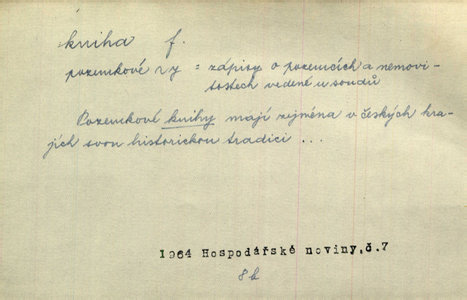 kniha f.
pozemkové ~y = zápisy o pozemcích a nemovi-
tostech vedené u soudů
Pozemkové knihy mají zejména v českých kra-
jích svou historickou tradici ...
1964 Hospodářské noviny,č.7
8b